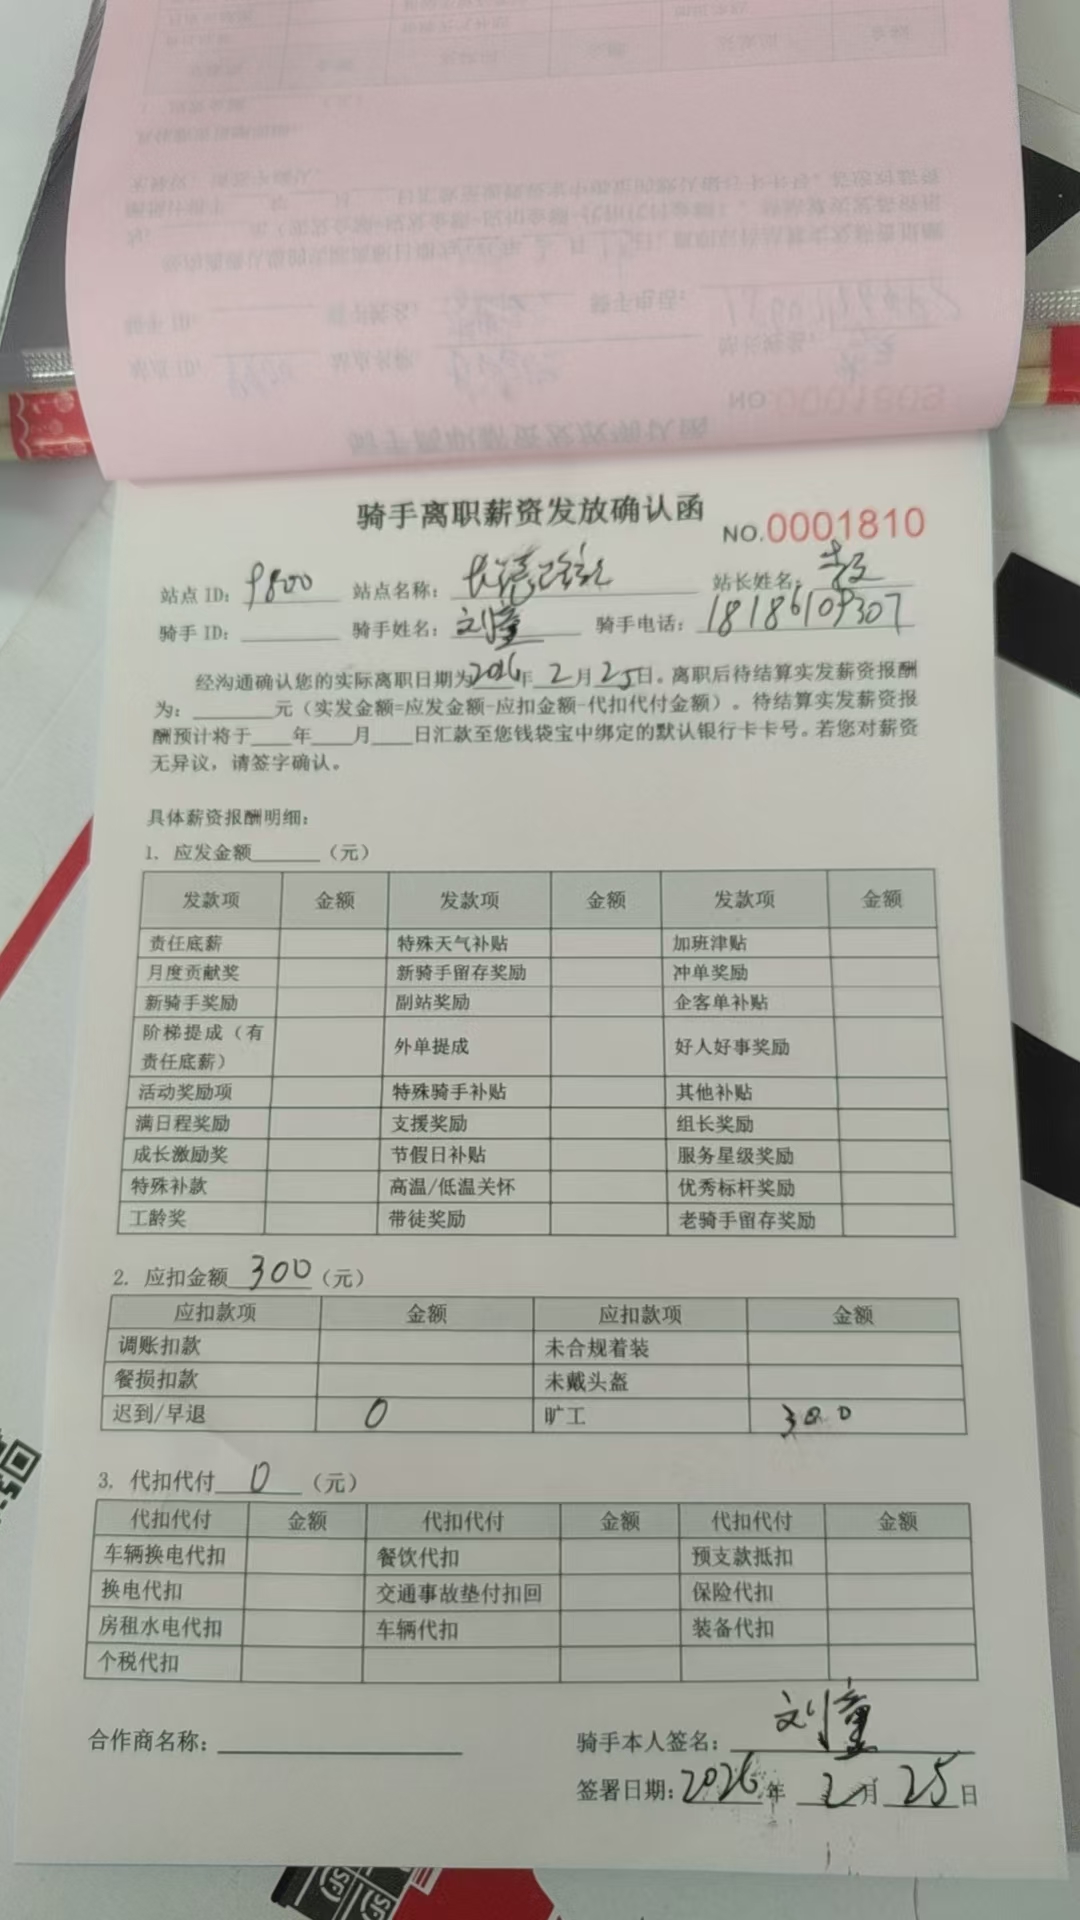 骑手离职薪资发放确认函
NO.0001810
站点 ID: 9800 站点名称: 站长姓名:
骑手 ID: 骑手姓名: 刘童 骑手电话: 18186109307
经沟通确认您的实际离职日期为2026年2月25日。离职后待结算实发薪资报酬
为:______元（实发金额=应发金额-应扣金额-代扣代付金额）。待结算实发薪资报
酬预计将于___年___月___日汇款至您钱袋宝中绑定的默认银行卡卡号。若您对薪资
无异议，请签字确认。
具体薪资报酬明细：
1. 应发金额______（元）
发款项 金额 发款项 金额 发款项 金额
责任底薪 特殊天气补贴 加班津贴
月度贡献奖 新骑手留存奖励 冲单奖励
新骑手奖励 副站奖励 企客单补贴
阶梯提成（有
责任底薪） 外单提成 好人好事奖励
活动奖励项 特殊骑手补贴 其他补贴
满日程奖励 支援奖励 组长奖励
成长激励奖 节假日补贴 服务星级奖励
特殊补款 高温/低温关怀 优秀标杆奖励
工龄奖 带徒奖励 老骑手留存奖励
2. 应扣金额 300（元）
应扣款项 金额 应扣款项 金额
调账扣款 未合规着装
餐损扣款 未戴头盔
迟到/早退 0 旷工 300
3. 代扣代付 0（元）
代扣代付 金额 代扣代付 金额 代扣代付 金额
车辆换电代扣 餐饮代扣 预支款抵扣
换电代扣 交通事故垫付扣回 保险代扣
房租水电代扣 车辆代扣 装备代扣
个税代扣
合作商名称： 骑手本人签名: 刘童
签署日期: 2026年 2月25日